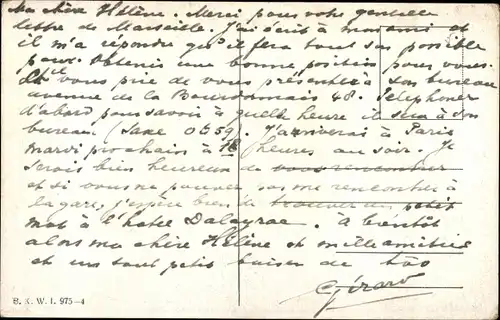 Ma chère Hélène. Merci pour votre gentille
lettre de Marseille. J'ai écrit à mon ami et
il m'a répondu qu'il fera tout son possible
pour obtenir une bonne position pour vous.
Et vous prie de vous présenter à son bureau
avenue de la Bourdonnais 48. Téléphoner
d'abord pour savoir à quelle heure il sera à son
bureau (Saxe 0559). J'arriverai à Paris
mardi prochain à 18 heures au soir. Je
serais bien heureux de vous rencontrer
et si vous ne pouvez pas me rencontrer à
la gare, j'espère bien de trouver un petit
mot à l'hotel Dalayrac. à bientôt
alors ma chère Hélène et mille amitiés
et un tout petit baiser de
Gérard
B. K. W. I. 975-4